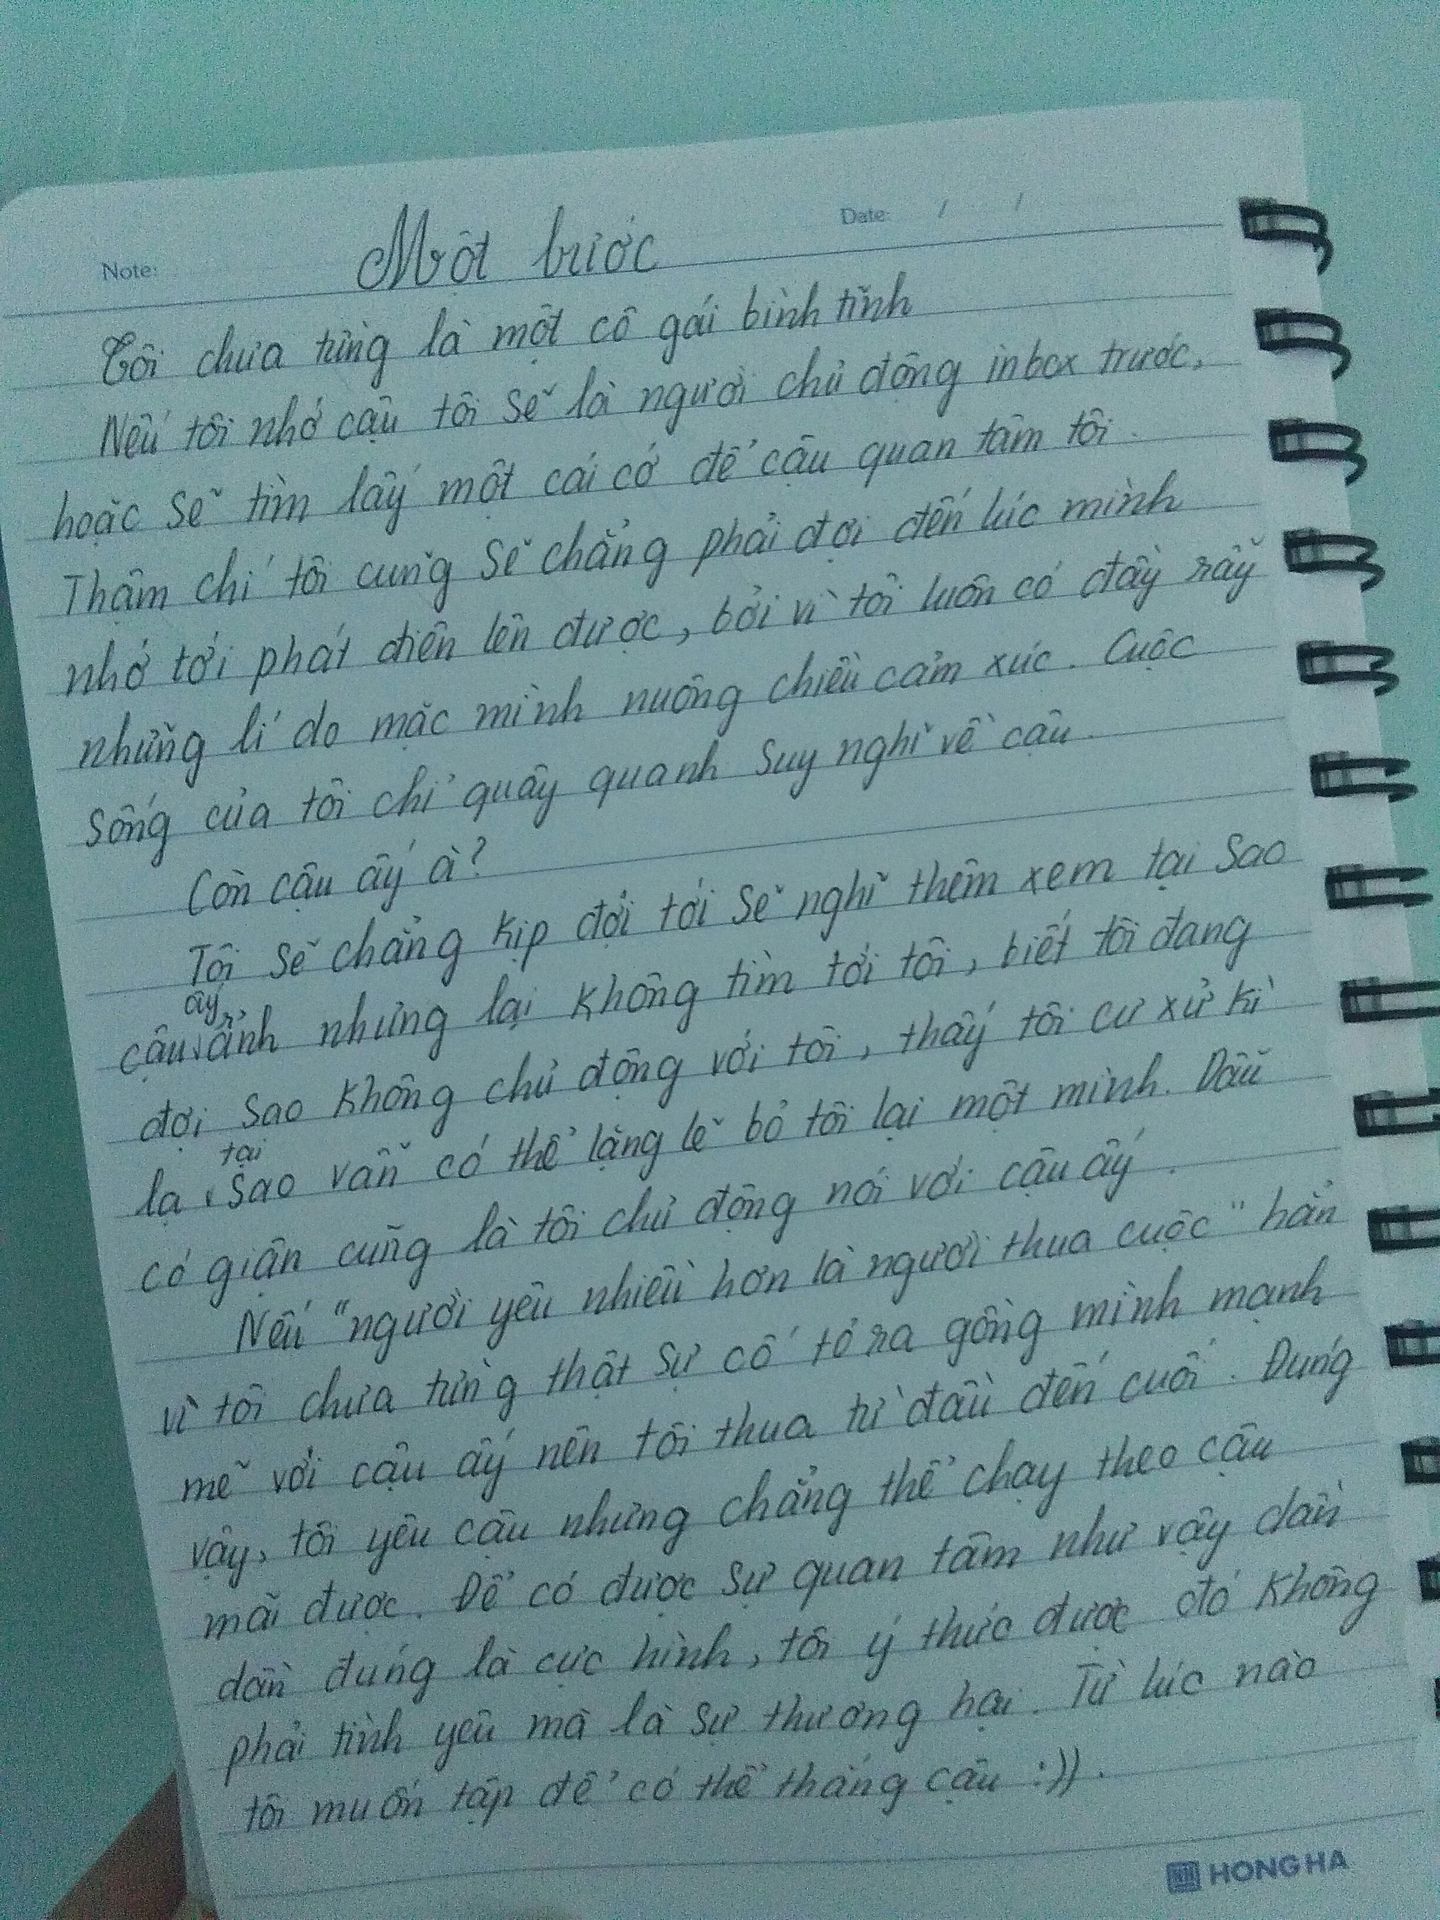 Note:
Date: / /
Một bước
Tôi chưa từng là một cô gái bình tĩnh
Nếu tôi nhớ cậu tôi sẽ là người chủ động inbox trước,
hoặc sẽ tìm lấy một cái cớ để cậu quan tâm tôi.
Thậm chí tôi cũng sẽ chẳng phải đợi đến lúc mình
nhớ tới phát điên lên được, bởi vì tôi luôn có đầy rẫy
những lí do mặc mình nuông chiều cảm xúc. Cuộc
sống của tôi chỉ quây quanh suy nghĩ về cậu.
Còn cậu ấy à?
Tôi sẽ chẳng kịp đợi tới sẽ nghĩ thêm xem tại sao
cậu ấy rảnh nhưng lại không tìm tới tôi, biết tôi đang
đợi sao không chủ động với tôi, thấy tôi cư xử kì
lạ tại sao vẫn có thể lặng lẽ bỏ tôi lại một mình. Dẫu
có giận cũng là tôi chủ động nói với cậu ấy.
Nếu "người yêu nhiều hơn là người thua cuộc" hẳn
vì tôi chưa từng thật sự cố tỏ ra gồng mình mạnh
mẽ với cậu ấy nên tôi thua từ đầu đến cuối. Đúng
vậy, tôi yêu cậu nhưng chẳng thể chạy theo cậu
mãi được. Để có được sự quan tâm như vậy dần
dần đúng là cực hình, tôi ý thức được đó không
phải tình yêu mà là sự thương hại. Từ lúc nào
tôi muốn tập để có thể tháng cậu :)).
HONG HA